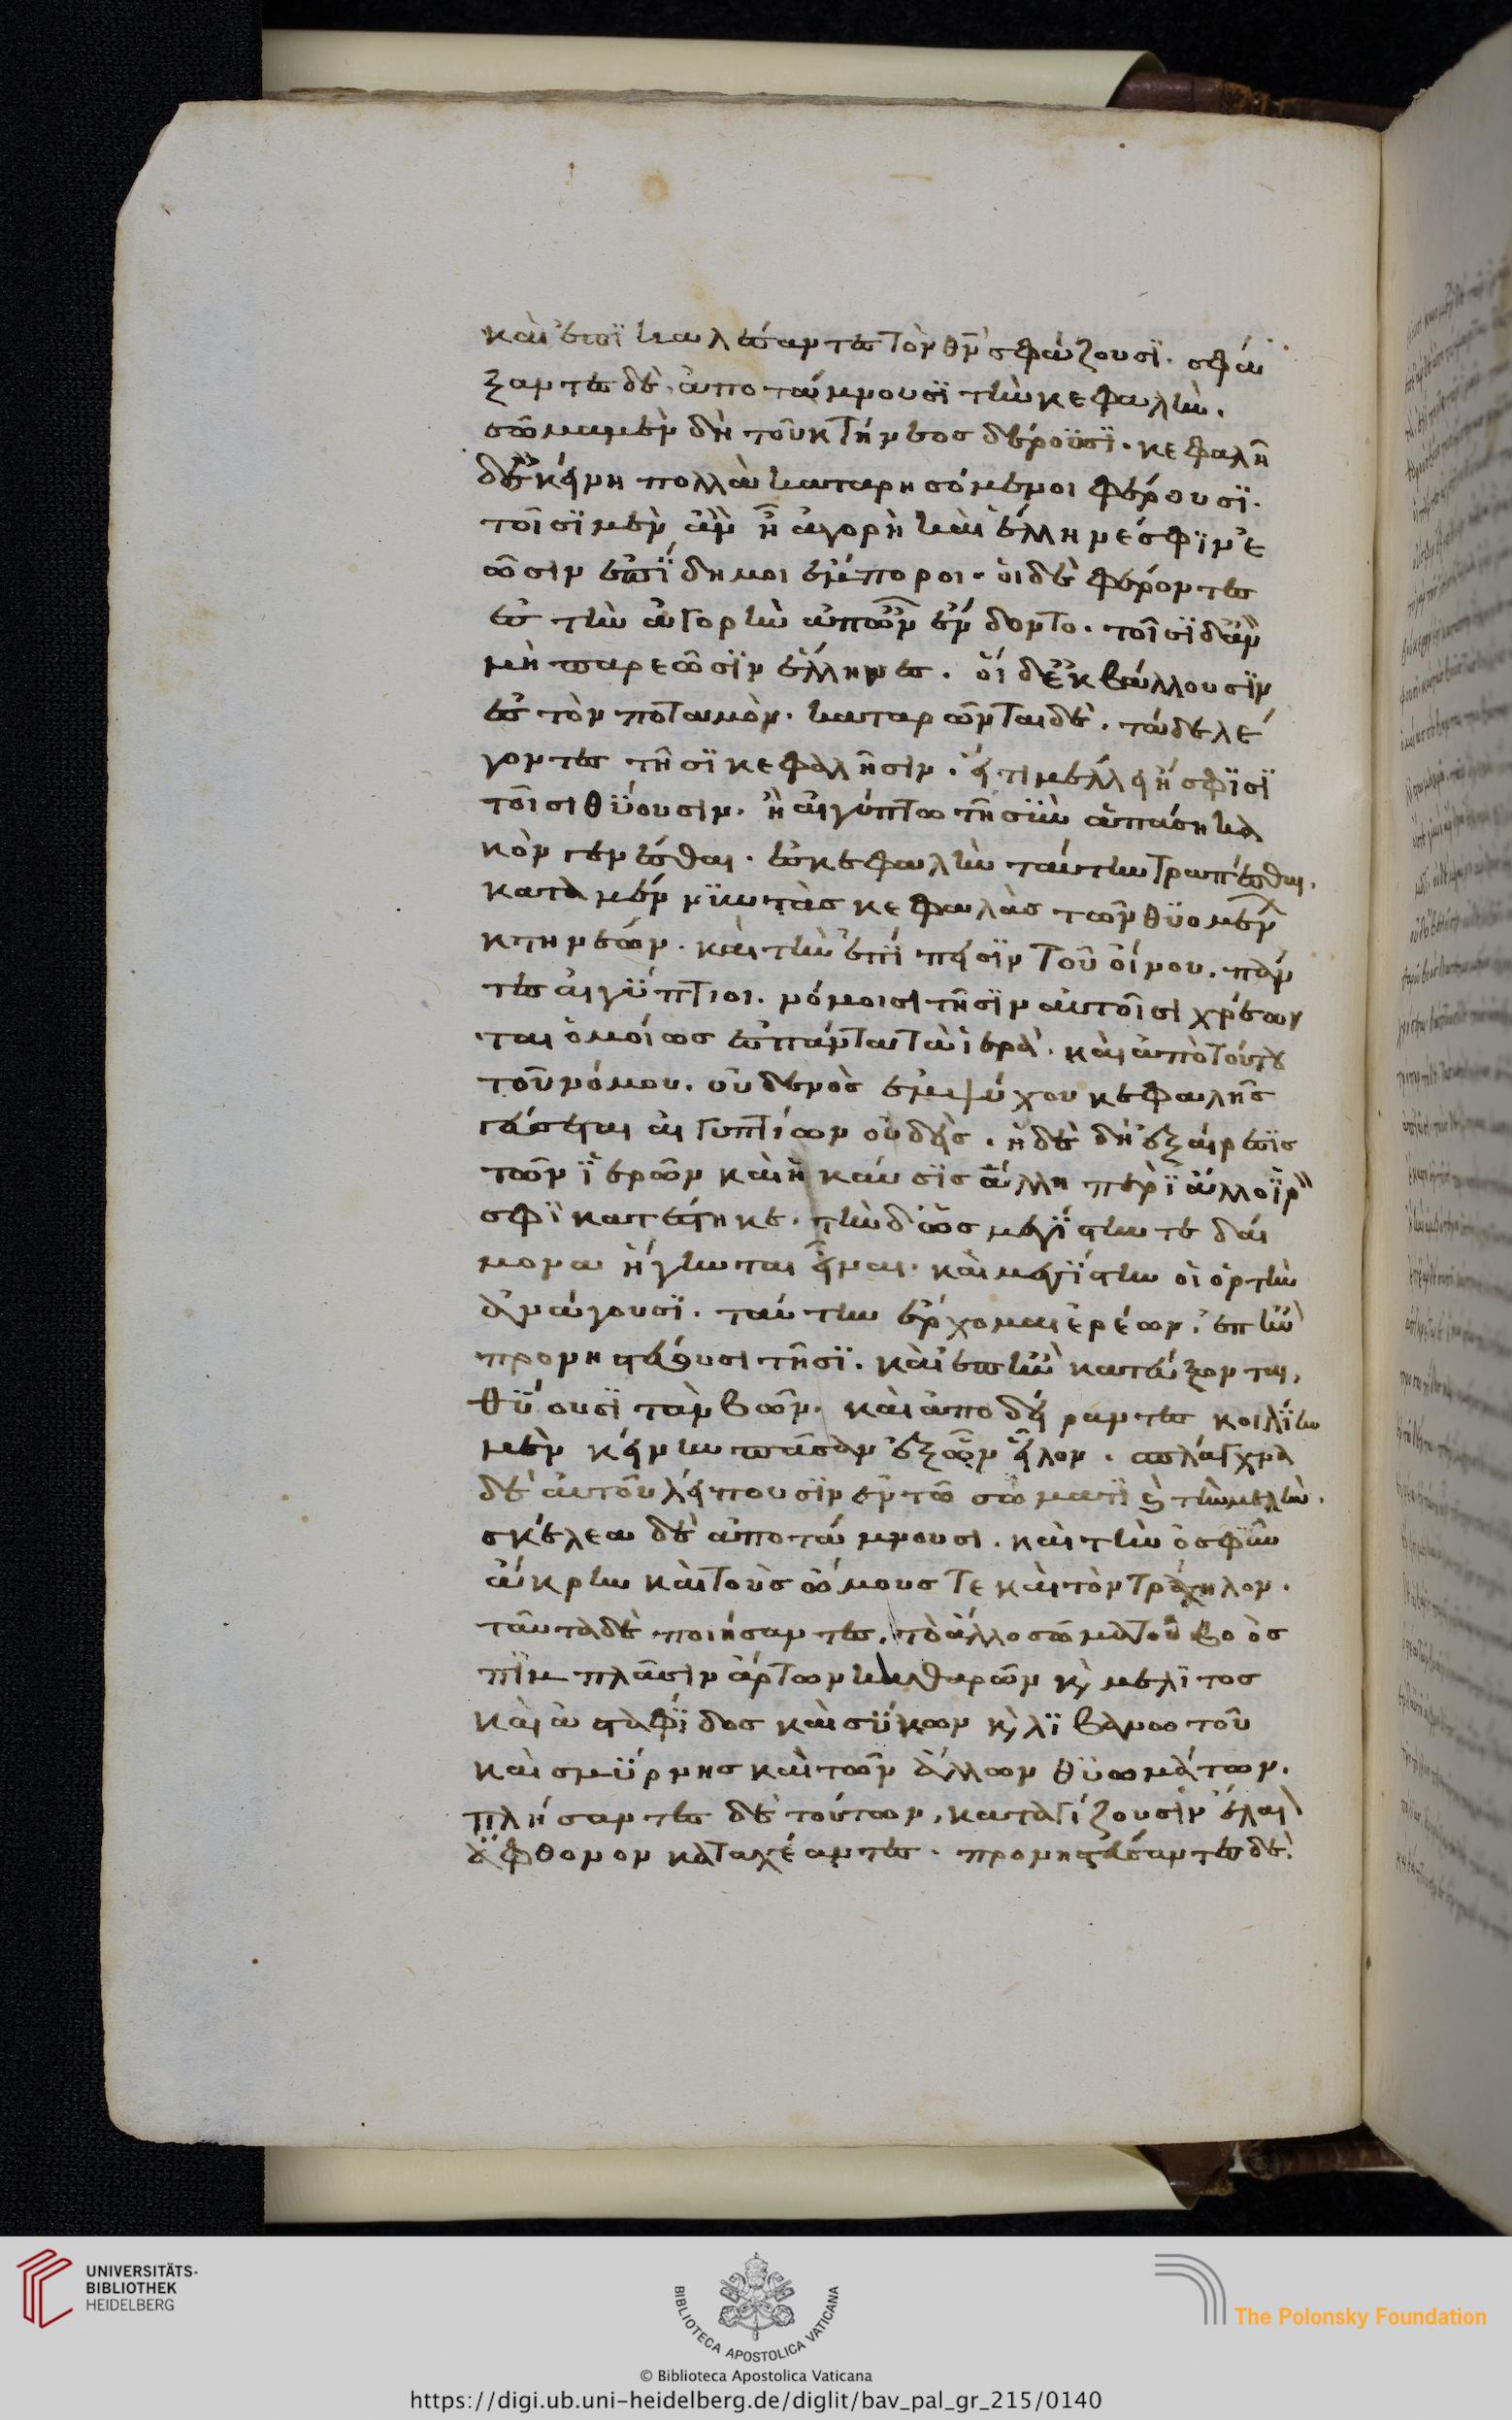 καὶ ἐπικαλέσαντες τὸν θν̅ σφάζουσϊ. σφά
ξαντες δὲ, ἀποτάμνουσϊ τὴν κεφαλὴν.
σῶμα μὲν δὴ τοῦ κτήνεος δέρουσϊ. κεφαλῆ
δὲ κείνη πολλὰ καταρησόμενοι φέρουσϊ.
τοῖσϊ μὲν ἂν ἦ ἀγορὴ καὶ ἕλληνές σφϊν ἐ
ῶσιν ἐπϊδήμοι ἔμποροι. οἱ δὲ φέροντες
ἐς τὴν ἀγορὴν ἀπῶν ἔδοντο. τοῖσϊ δ ἂν
μὴ παρεῶσϊν ἕλληνες. οἵ δ ἐκβάλλουσϊν
ἐς τὸν ποταμὸν. καταρῶνται δὲ. τάδε λέ
γοντες τῆσϊ κεφαλῆσιν. εἴ τι μέλλει ἤ σφϊσϊ
τοῖσι θϋουσιν. ἢ αἰγύπτω τῆ συναπάση κα
κὸν γενέσθαι. ἐς κεφαλὴν ταύτην τραπέσθαι.
κατὰ μέν νϋν τὰς κεφαλὰς τῶν θϋομέν
κτηνέων. καὶ τὴν ἐπϊπεισϊν τοῦ οἴνου. πάν
τες αἰγϋπτιοι. νόμοισι τῆσϊν αὐτοῖσι χρέων
ται ὁμοίως ἐς πάντα τὰ ἱερὰ. καὶ ἀπὸ τούτου
τοῦ νόμου. οὐδενὸς ἐμψύχου κεφαλῆς
γεύσεται αἰγυπτίων οὐδεὶς. ἡ δὲ δὴ ἐξαίρεσϊς
τῶν ϊερῶν καὶ ἡ καύσϊς ἄλλη περὶ ἄλλο ϊρὸν
σφϊ κατέστηκε. τὴν δ ὦς μεγϊστην τε δαί
μονα ἥγηνται εἶναι. καὶ μεγϊστην οἱ ὁρτὴν
ἀνάγουσϊ. ταύτην ἔρχομαι ἐρέων. ἐπὴν
προνηστεύσωσι τῆ ϊσϊ. καὶ ἐπὴν κατεύξονται,
θϋουσϊ τὸν βοῦν. καὶ ἀποδείραντες κοιλϊην
μὲν κείνην πᾶσαν ἐξῶν εἷλον. σπλάγχνα
δὲ αὐτοῦ λείπουσϊν ἐν τῶ σώματϊ καὶ τὴν μελὴν.
σκέλεα δὲ ἀποτάμνουσι. καὶ τὴν ὀσφὺν
ἄκρην καὶ τοὺς ὤμους τε καὶ τὸν τράχηλον.
ταῦτα δὲ ποιήσαντες. τὸ ἄλλο σῶμα τοῦ βοὸς
πϊμπλᾶσιν ἄρτων καθαρῶν καὶ μέλϊτος
καὶ ἀσταφϊδος καὶ σϋκων καὶ λϊβανωτοῦ
καὶ σμϋρνης καὶ τῶν ἄλλων θϋωμάτων.
πλήσαντες δὲ τούτων, καταγίζουσϊν ἔλαι
ἄφθονον καταχέαντες. προνηστεύσαντες δὲ.
UNIVERSITÄTS-
BIBLIOTHEK
HEIDELBERG
BIBLIOTECA APOSTOLICA VATICANA
The Polonsky Foundation
© Biblioteca Apostolica Vaticana
https://digi.ub.uni-heidelberg.de/diglit/bav_pal_gr_215/0140